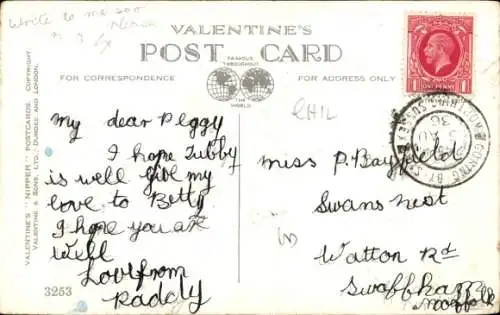 write to me soo
VALENTINE'S
POST CARD
FAMOUS
THROUGHOUT
THE
WORLD
FOR CORRESPONDENCE
FOR ADDRESS ONLY
1 ONE PENNY 1
GORING BY SEA
WORTHING SUSSEX
CHIL
My dear Peggy
I hope Tubby
is well give my
love to Betty
I hope you are
well
Love from
Paddy
Miss P. Bayfield
Swans nest
Watton Rd
Swaffham
Norfolk
VALENTINE'S "NIPPER" POSTCARDS. COPYRIGHT.
VALENTINE & SONS, LTD., DUNDEE AND LONDON.
3253